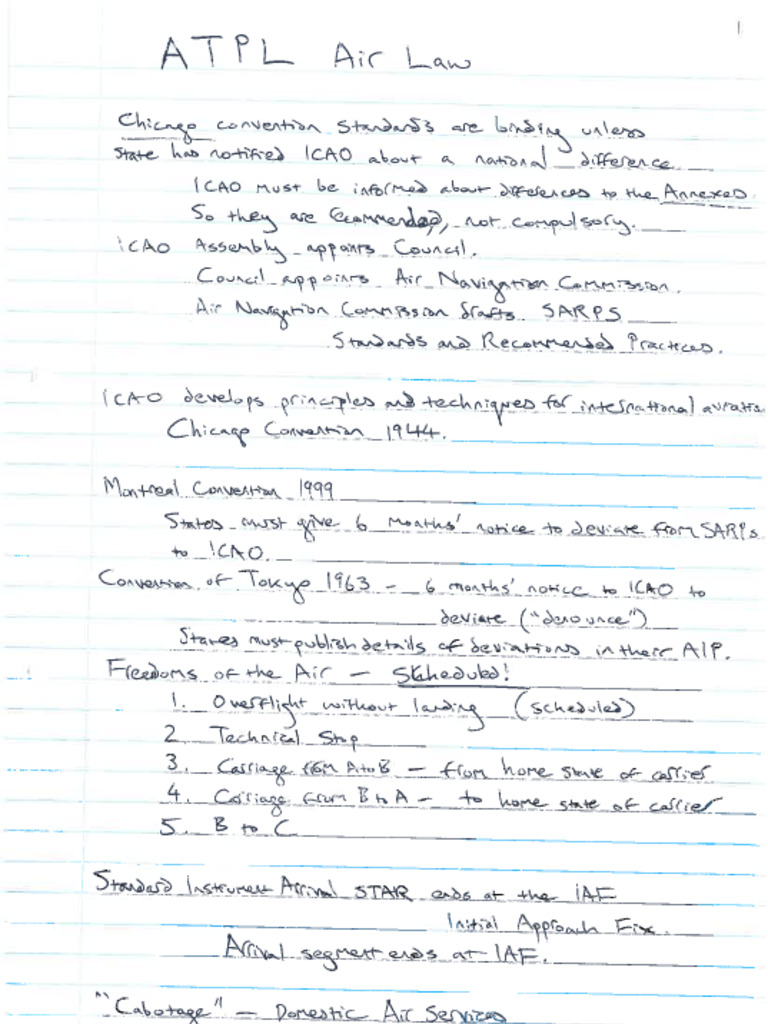 1
ATPL Air Law
Chicago convention standards are binding unless
state has notified ICAO about a national difference
ICAO must be informed about differences to the Annexes
So they are recommended, not compulsory.
ICAO Assembly appoints Council.
Council appoints Air Navigation Commission.
Air Navigation Commission drafts SARPS
Standards and Recommended Practices.
ICAO develops principles and techniques for international aviation
Chicago Convention 1944.
Montreal Convention 1999
States must give 6 months' notice to deviate from SARPs
to ICAO.
Convention of Tokyo 1963 - 6 months' notice to ICAO to
deviate ("denounce")
States must publish details of deviations in their AIP.
Freedoms of the Air - Scheduled!
1. Overflight without landing (scheduled)
2. Technical Stop
3. Carriage from A to B - from home state of carrier
4. Carriage from B to A - to home state of carrier
5. B to C
Standard Instrument Arrival STAR ends at the IAF
Initial Approach Fix.
Arrival segment ends at IAF.
"Cabotage" - Domestic Air Services